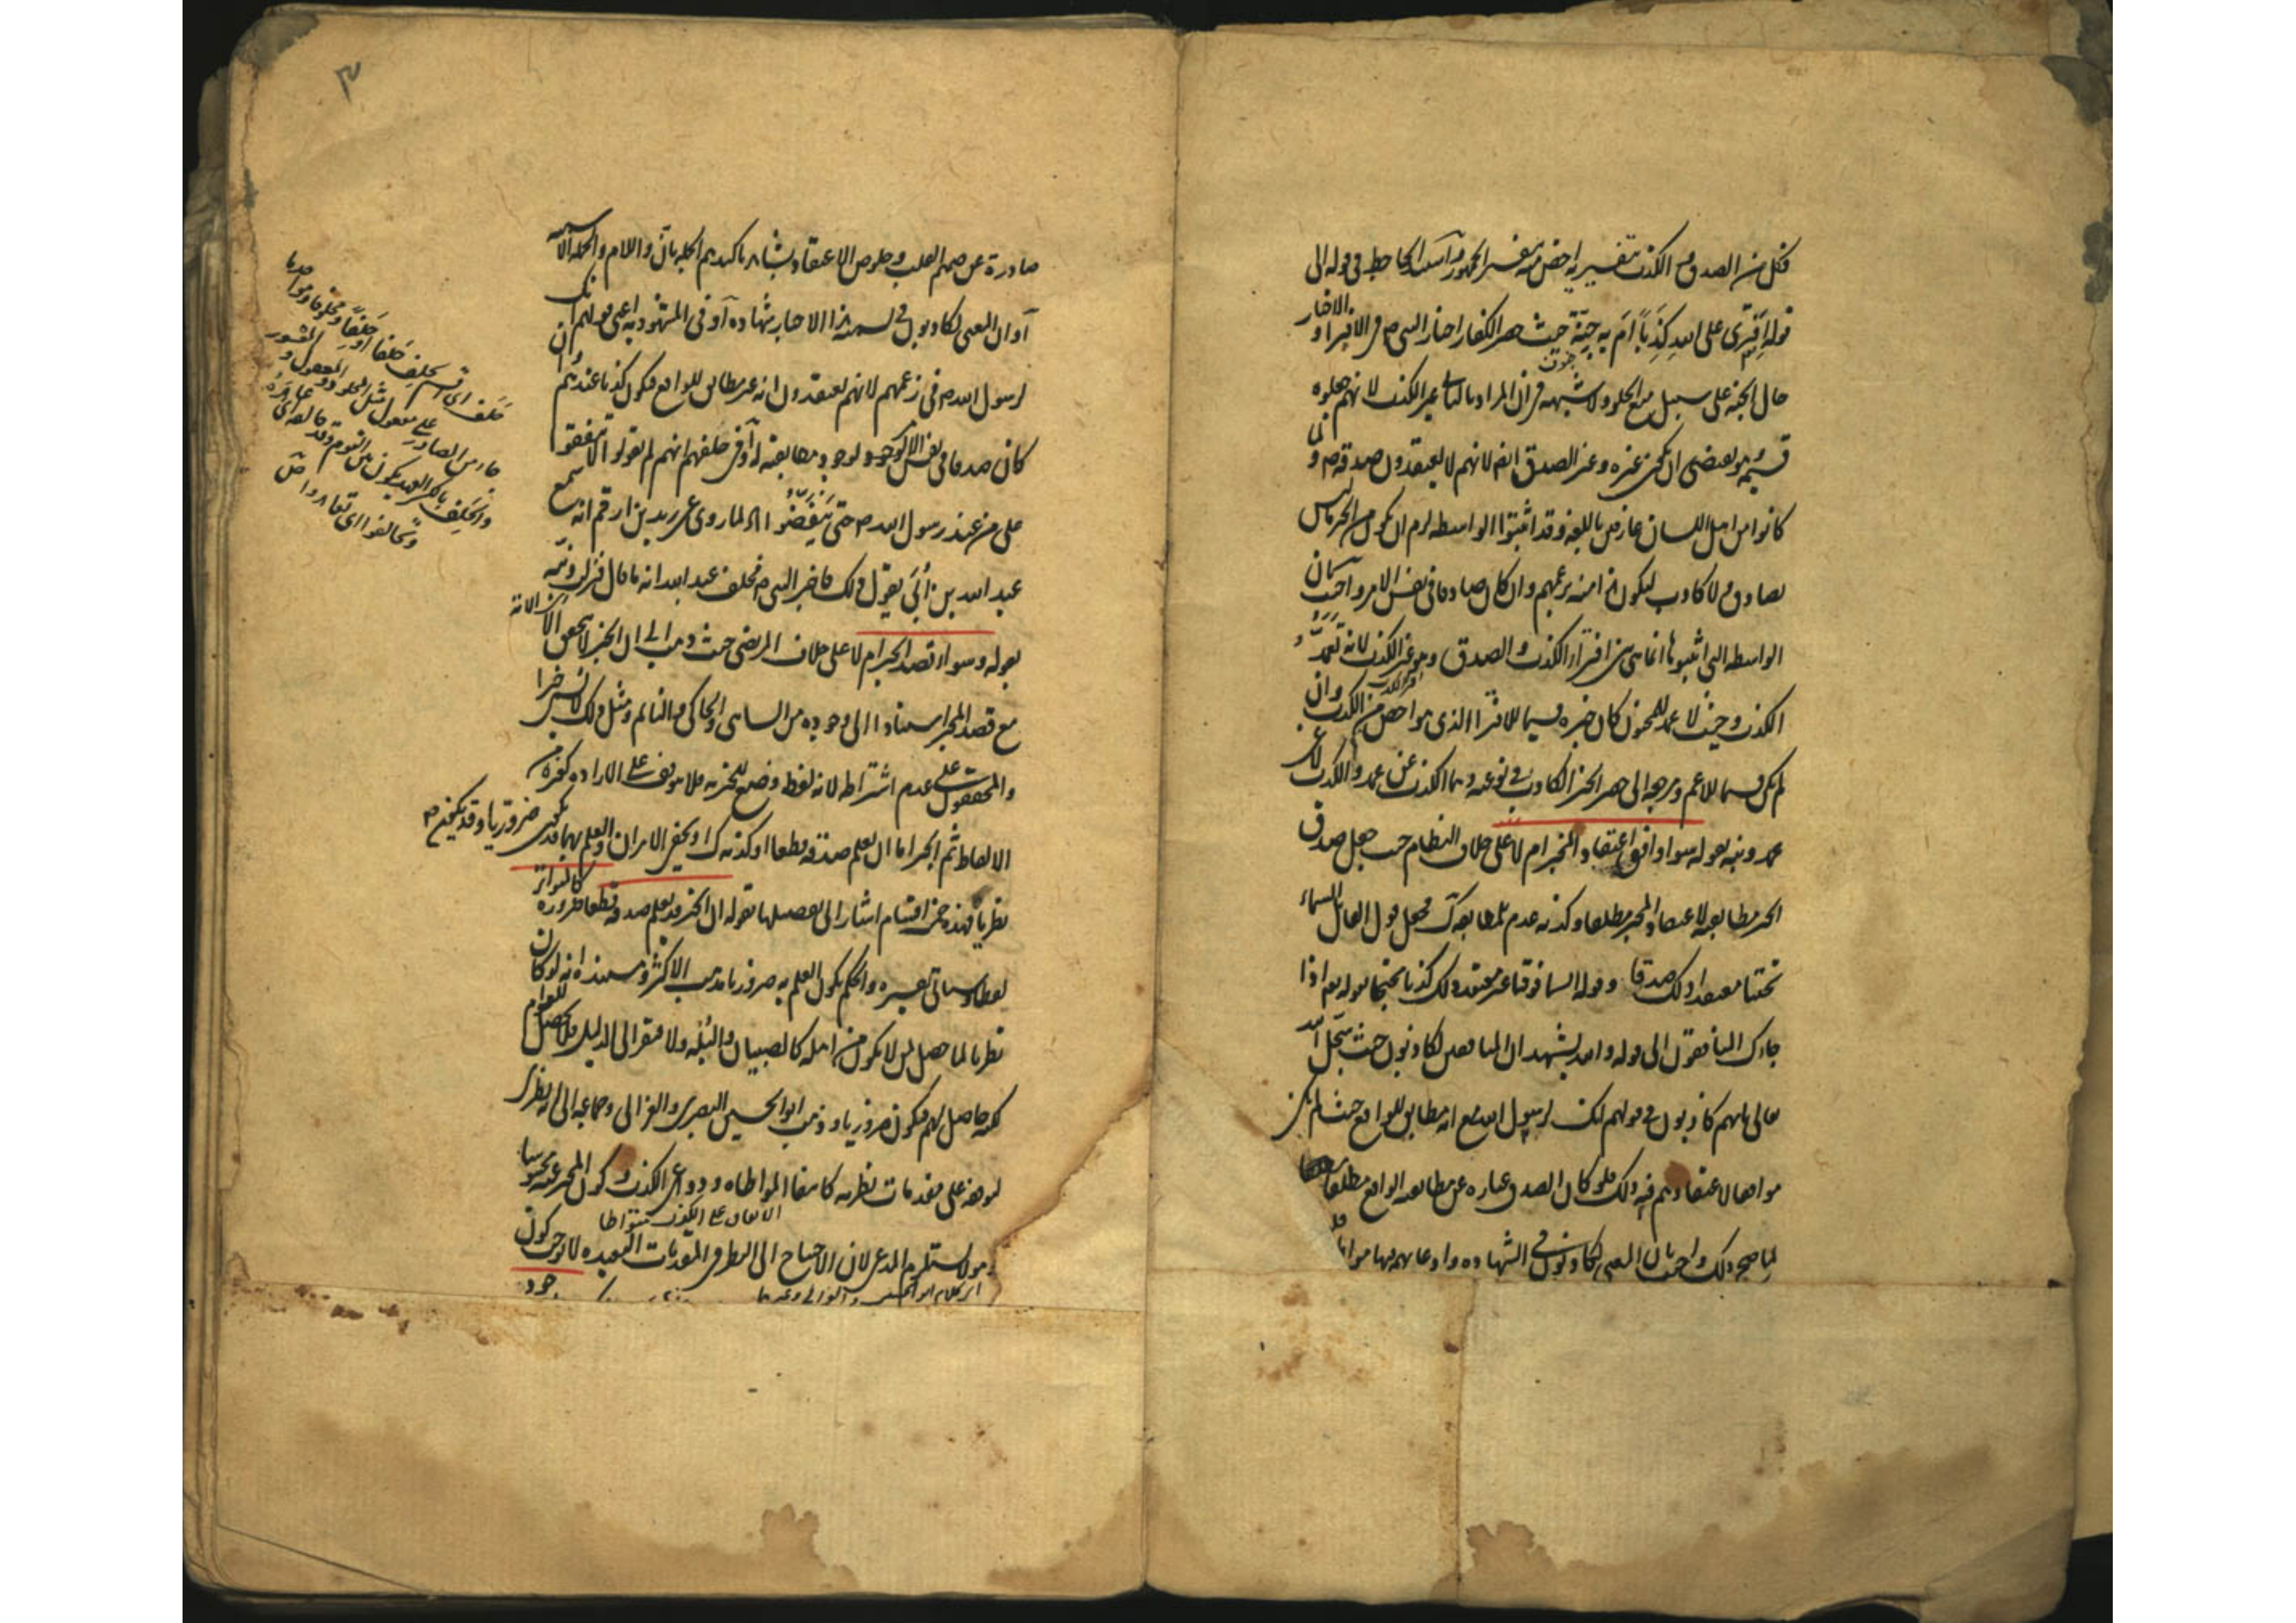 فكل من الصدق و الكذب بتفسيره اخص منه بتفسير الجمهور و الجاحظ في قوله الى
قوله افترى على الله كذبا ام به جنة حيث حصر الكفار اخبار النبي ص في الافتراء و الاخبار
حال الجنة على سبيل منع الخلو ولا شبهة في ان المراد بالثاني غير الكذب لانهم جعلوه
جنون
قسيمه وهو يقتضي ان يكون غيره وغير الصدق ايضا لانهم لا يعتقدون صدقه ص و
كانوا من اهل اللسان عارفين باللغة وقد اثبتوا الواسطة لزم ان يكون من الخبر ما ليس
بصادق ولا كاذب ليكون هذا منه بزعمهم وان كان صادقا في نفس الامر واجيب بان
الواسطة التي اثبتوها انما هي بين افتراء الكذب والصدق وهو غير الكذب لانه تعمد
الكذب وحيث لا عمد للمجنون كان خبره قسيما للافتراء الذي هو اخص من الكذب وان
لم يكن قسيما للاعم ومرجعه الى حصر الخبر الكاذب في نوعيه وهما الكذب عن عمد والكذب لا عن
عمد ونبه بقوله سواء وافق اعتقاد المخبر ام لا على خلاف النظام حيث جعل صدق
الخبر مطابقته لاعتقاد المخبر مطلقا وكذبه عدم مطابقته كك فجعل قول القائل السماء
تحتنا معتقدا ذلك صدقا وقوله السماء فوقنا غير معتقد ذلك كذبا محتجا بقوله تعالى اذا
جاءك المنافقون الى قوله والله يشهد ان المنافقين لكاذبون حيث سجل الله
تعالى بانهم كاذبون في قولهم انك لرسول الله مع انه مطابق للواقع حيث لم يكن
موافقا لاعتقادهم فيه ذلك فلو كان الصدق عبارة عن مطابقة الواقع مطلقا
لما صح ذلك واجيب بان المعنى لكاذبون في الشهادة وادعائهم فيها
صادرة عن صميم القلب وخلوص الاعتقاد بشهادة تاكيدهم الجملة بان واللام والجملة الاسمية
او ان المعنى لكاذبون في تسمية هذا الاخبار شهادة او في المشهود به اعني قولهم انك
لرسول الله ص في زعمهم لانهم يعتقدون انه غير مطابق للواقع فيكون كذبا عندهم وان
كان صدقا في نفس الامر لوجود مطابقته او في حلفهم انهم لم يقولوا لا تنفقوا
على من عند رسول الله ص حتى ينفضوا لما روي عن زيد بن ارقم انه سمع
عبد الله بن ابي يقول ذلك فاخبر النبي ص فحلف عبد الله انه ما قال فنزلت ونبه
بقوله وسواء قصد الخبر ام لا على خلاف المرتضى حيث ذهب الى ان الخبر لا يتحقق الا
مع قصد المخبر استنادا الى وجوده من الساهي والحاكي والنائم ومثل ذلك لا يسمى خبرا
والمحققون على عدم اشتراطه لانه لفظ وضع للخبرية فلا يتوقف على الارادة كغيره من
الالفاظ ثم الخبر اما ان يعلم صدقه قطعا او كذبه كك او يخفى الامران والعلم بهما قد يكون ضروريا وقد يكون
نظريا فهذه خمسة اقسام اشار الى تفصيلها بقوله ان الخبر قد يعلم صدقه قطعا ضرورة كالمتواتر
لفظا وسياتي تفسيره والحكم بكون العلم به ضروريا مذهب الاكثر ومستنده انه لو كان
نظريا لما حصل لمن لا يكون من اهله كالصبيان والبله ولافتقر الى الدليل فلا يحصل للعوام
لكنه حاصل لهم فيكون ضروريا وذهب ابو الحسين البصري والغزالي وجماعة الى انه نظري
لتوقفه على مقدمات نظرية كانتفاء المواطاة ودواعي الكذب وكون المخبر عنه محسوسا
الاتفاق على الكذب متواطئا
وهو لا يستلزم المدعى لان الاحتياج الى النظر في المقدمات البعيدة لا يوجب كون
حلف اي قسم يحلف حلفا
جاء من المصادر على مفعول مثل المجلود والمعقول والمعسور
والحلف بالكسر العهد يكون بين القوم وقد حالفه اي عاهده
وتحالفوا اي تعاهدوا ص